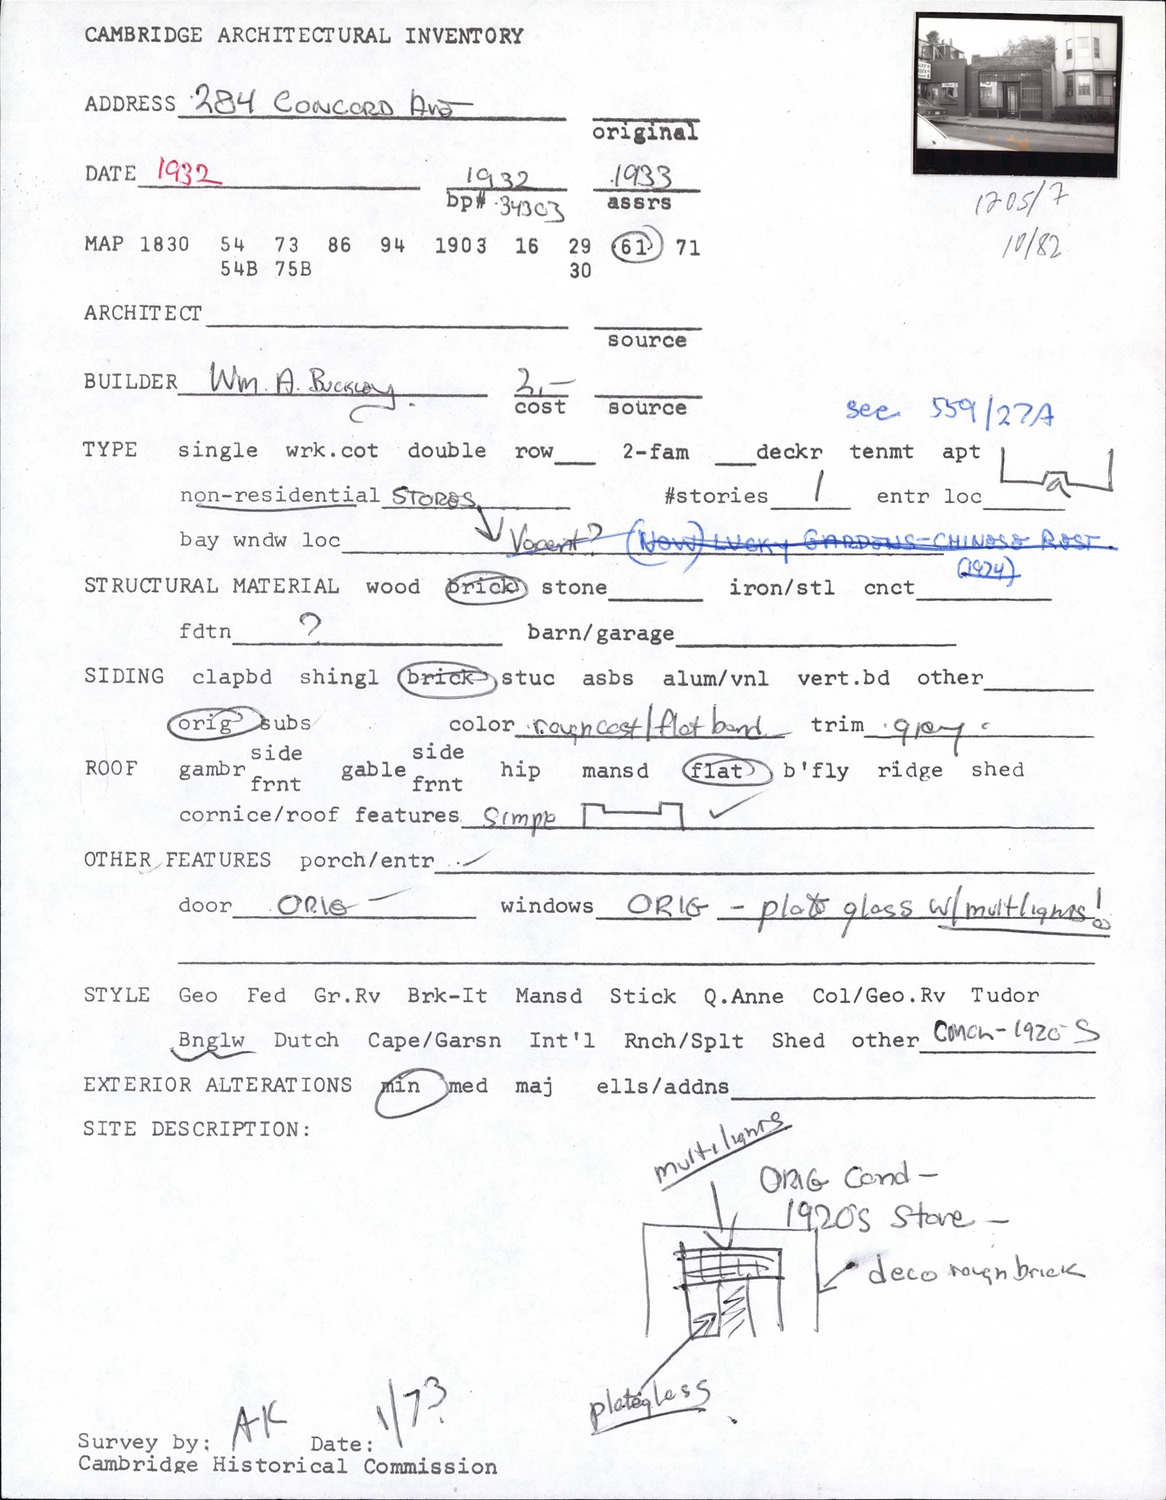 CAMBRIDGE ARCHITECTURAL INVENTORY
ADDRESS 284 CONCORD AVE
original
DATE 1932 1932 1933
bp# 34303 assrs
MAP 1830 54 73 86 94 1903 16 29 61 71
54B 75B 30
1205/7
10/82
ARCHITECT
source
BUILDER Wm. A. Buckley 3,—
cost source
see 559/27A
TYPE single wrk.cot double row 2-fam deckr tenmt apt
non-residential STORES #stories 1 entr loc a
bay wndw loc Vacant? (NOW) LUCKY GARDENS-CHINESE REST.
(1974)
STRUCTURAL MATERIAL wood brick stone iron/stl cnct
fdtn ? barn/garage
SIDING clapbd shingl brick stuc asbs alum/vnl vert.bd other
orig subs color roughcast/flat band trim grey
side side
ROOF gambr gable hip mansd flat b'fly ridge shed
frnt frnt
cornice/roof features Simple ✓
OTHER FEATURES porch/entr ✓
door ORIG — windows ORIG - plate glass w/multlights!
STYLE Geo Fed Gr.Rv Brk-It Mansd Stick Q.Anne Col/Geo.Rv Tudor
Bnglw Dutch Cape/Garsn Int'l Rnch/Splt Shed other 1920'S
EXTERIOR ALTERATIONS min med maj ells/addns
SITE DESCRIPTION:
multilights
ORIG Cond —
1920'S Store —
deco rough brick
plateglass
Survey by: AK Date: 1/73
Cambridge Historical Commission